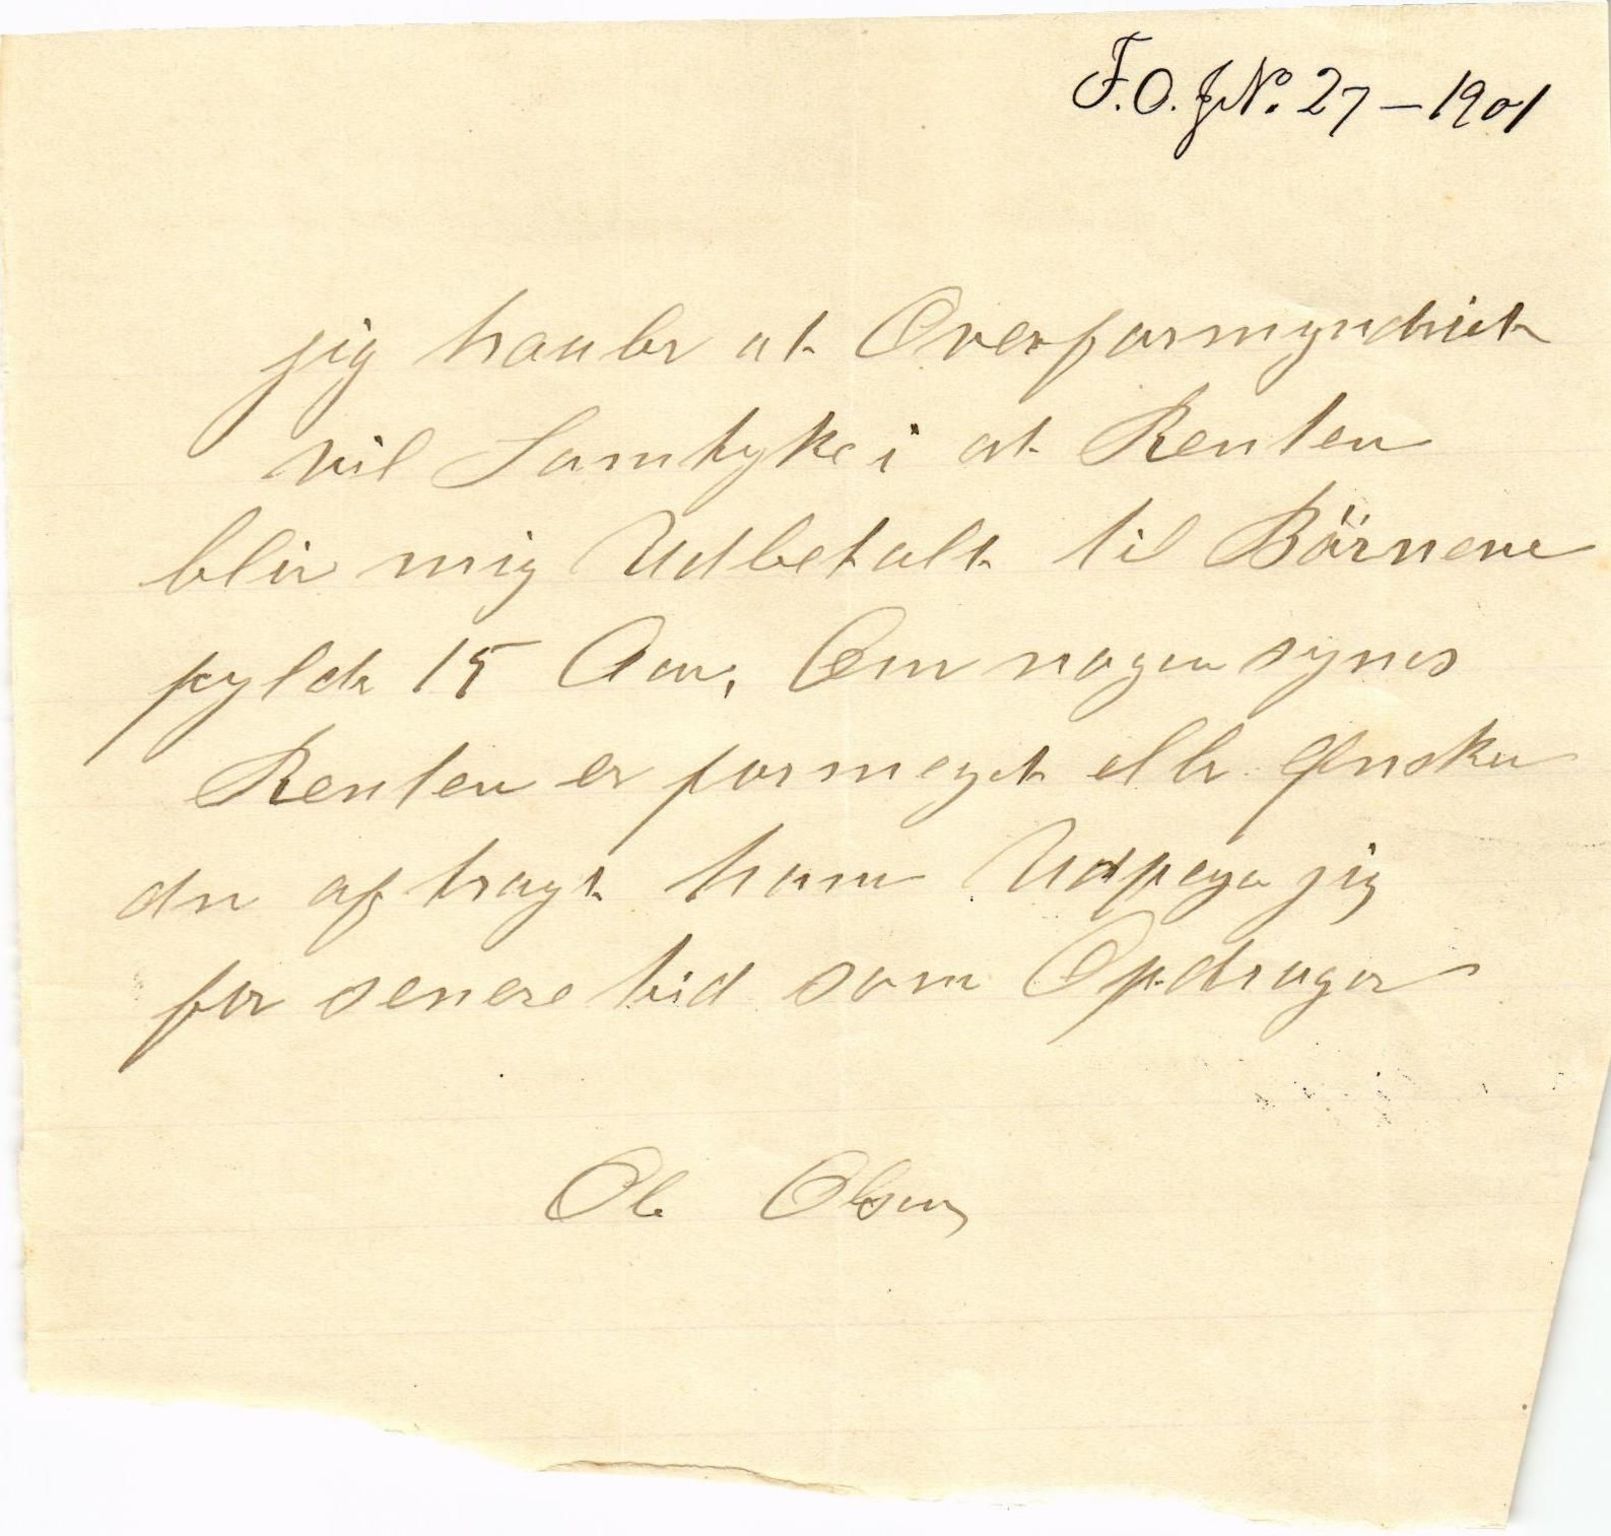 F.O. JNo. 27 – 1901
jig haaber at Overformynderiet
vil Samtyke i at Renten
blir mig Udbetalt til Börnene
fylder 15 Aar, Om nogen synes
Renten er formeget eller Ønsker
den aftragt ham Udpeger jig
for senere tid som Opdrager
Ole Olsen